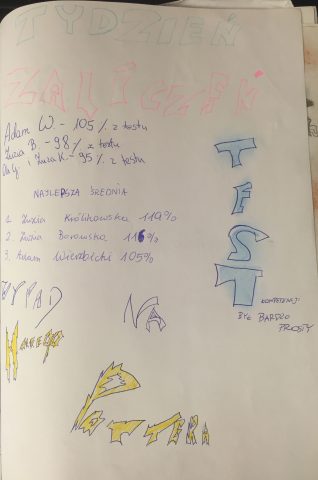 TYDZIEŃ
ZALICZEŃ
Adam W. - 105 % z testu
Zuzia B. - 98% z testu
i Zuza K. - 95% z testu
TEST
NAJLEPSZA ŚREDNIA
1. Zuzia Królikowska 119%
2. Zuzia Borowska 116%
3. Adam Wierzbicki 105%
KOMPETENCJI
BYŁ BARDZO
PROSTY
WYPAD NA
HARREGO
POTTERA